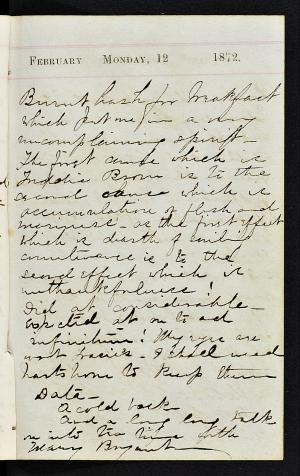 FEBRUARY MONDAY, 12 1872.
Burnt hash for breakfast
which put me in a very
uncomplaining spirit -
The first cause which is
Freddie Brown is to the
second cause which is
accumulation of flesh and
as the first effect
which is dearth of smiling
countenance is to the
second effect which is
unthankfulness!
Did at considerable
at on to ad
infinitum! My eyes are
I shall need
hartshorn to keep them
Data -
A cold back
And a long long talk
Bryant